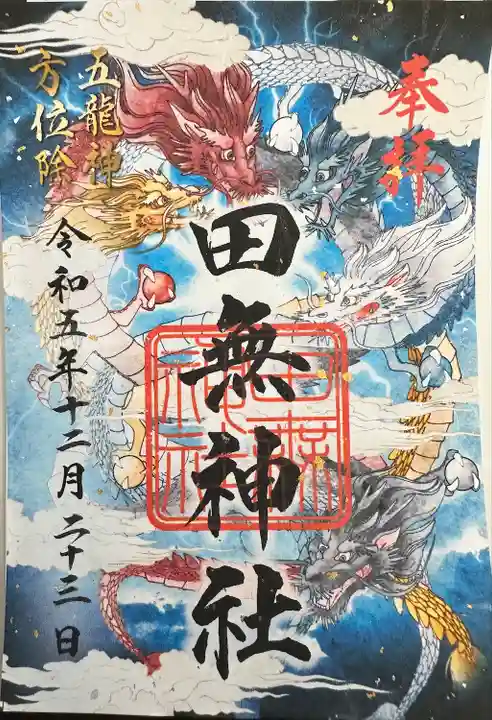 奉拝
田無神社
田無神社
五龍神
方位除
令和五年十二月二十三日